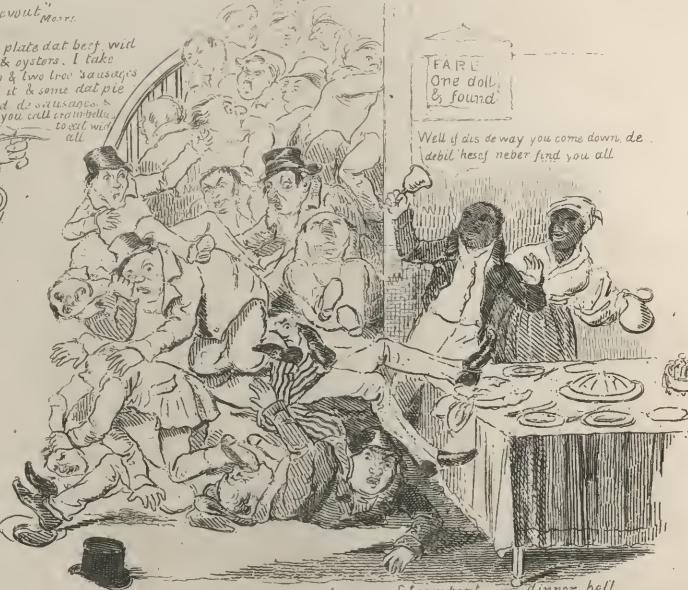 Moore.
plate dat beef wid
& oysters. I take
& two tree sausages
it & some dat pie
de sausages &
you call
to eat wid
all
FARE
One doll.
& found
Well if dis de way you come down, de
debil heself neber find you all
Steamboat dinner bell